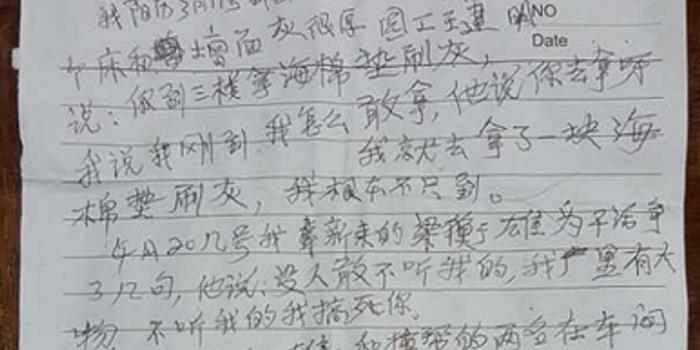 我阳历3月17号 灰很厚 园工王建明
NO
Date
个床和墙面
说：你到三楼拿海棉垫刷灰，
我说我刚到我怎么敢拿，他说你去拿呀
我就去拿了一块海
棉垫刷灰，我根本不只到。
4月20几号我 新来的梁 于雄为干活争
3几句，他说：没人敢不听我的，我厂里有大
物 不听我的我搞死你。
和 的两名在车间